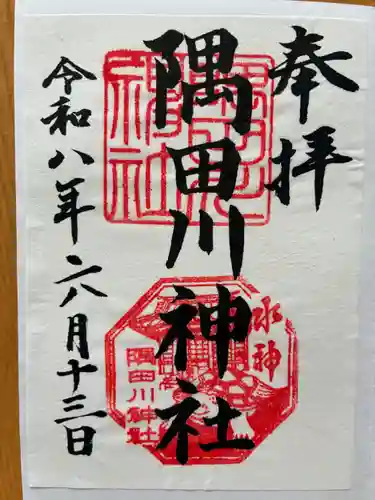 奉拝
隅田川神社
令和八年六月十三日
水神
隅田川神社